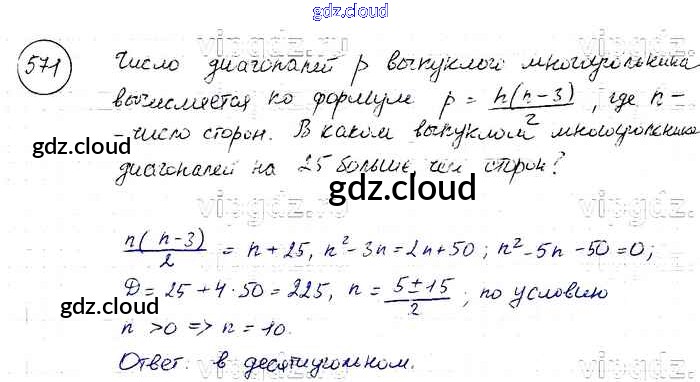 gdz.cloud
571
Число диагоналей p выпуклого многоугольника
вычисляется по формуле p = n(n-3)/2, где n-
- число сторон. В каком выпуклом многоугольнике
диагоналей на 25 больше, чем сторон?
gdz.cloud
gdz.cloud
n(n-3)/2 = n+25, n²-3n=2n+50; n²-5n-50=0;
D=25+4·50=225, n = (5±15)/2; по условию
n>0 => n=10.
Ответ. в десятиугольном.
gdz.cloud
gdz.cloud